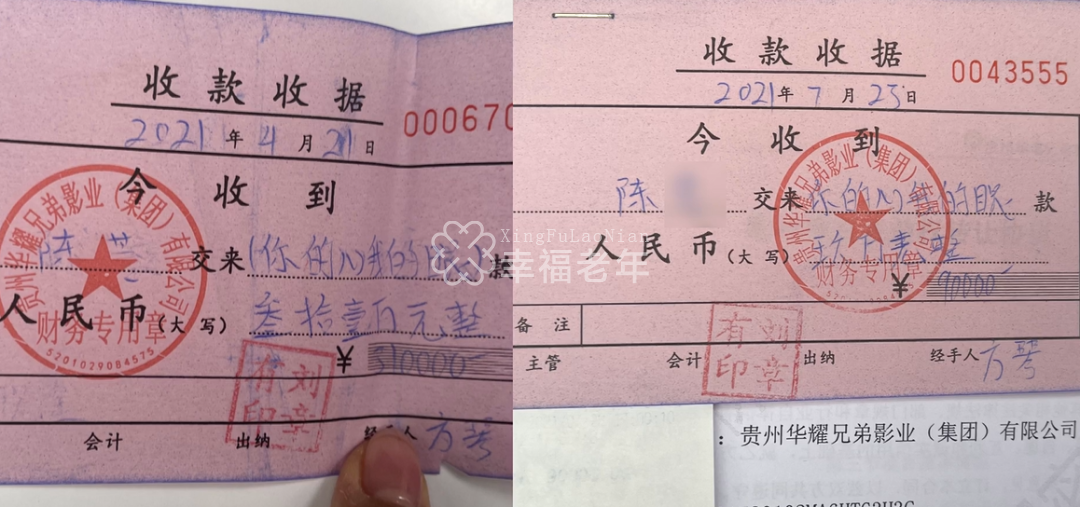 收款收据
000670
2021年4月21日
今收到
陈 交来《你的心我的眼》款
人民币(大写)叁拾壹万元整
¥310000
会计 出纳 经手人 方琴
贵州华耀兄弟影业(集团)有限公司
财务专用章
5201029084575
有刘印章
收款收据
0043555
2021年7月23日
今收到
陈 交来 你的心我的眼 款
人民币(大写)玖万元整
¥90000
备注
主管 会计 出纳 经手人 方琴
贵州华耀兄弟影业(集团)有限公司
财务专用章
有刘印章
:贵州华耀兄弟影业(集团)有限公司
XingFuLaoNian
幸福老年